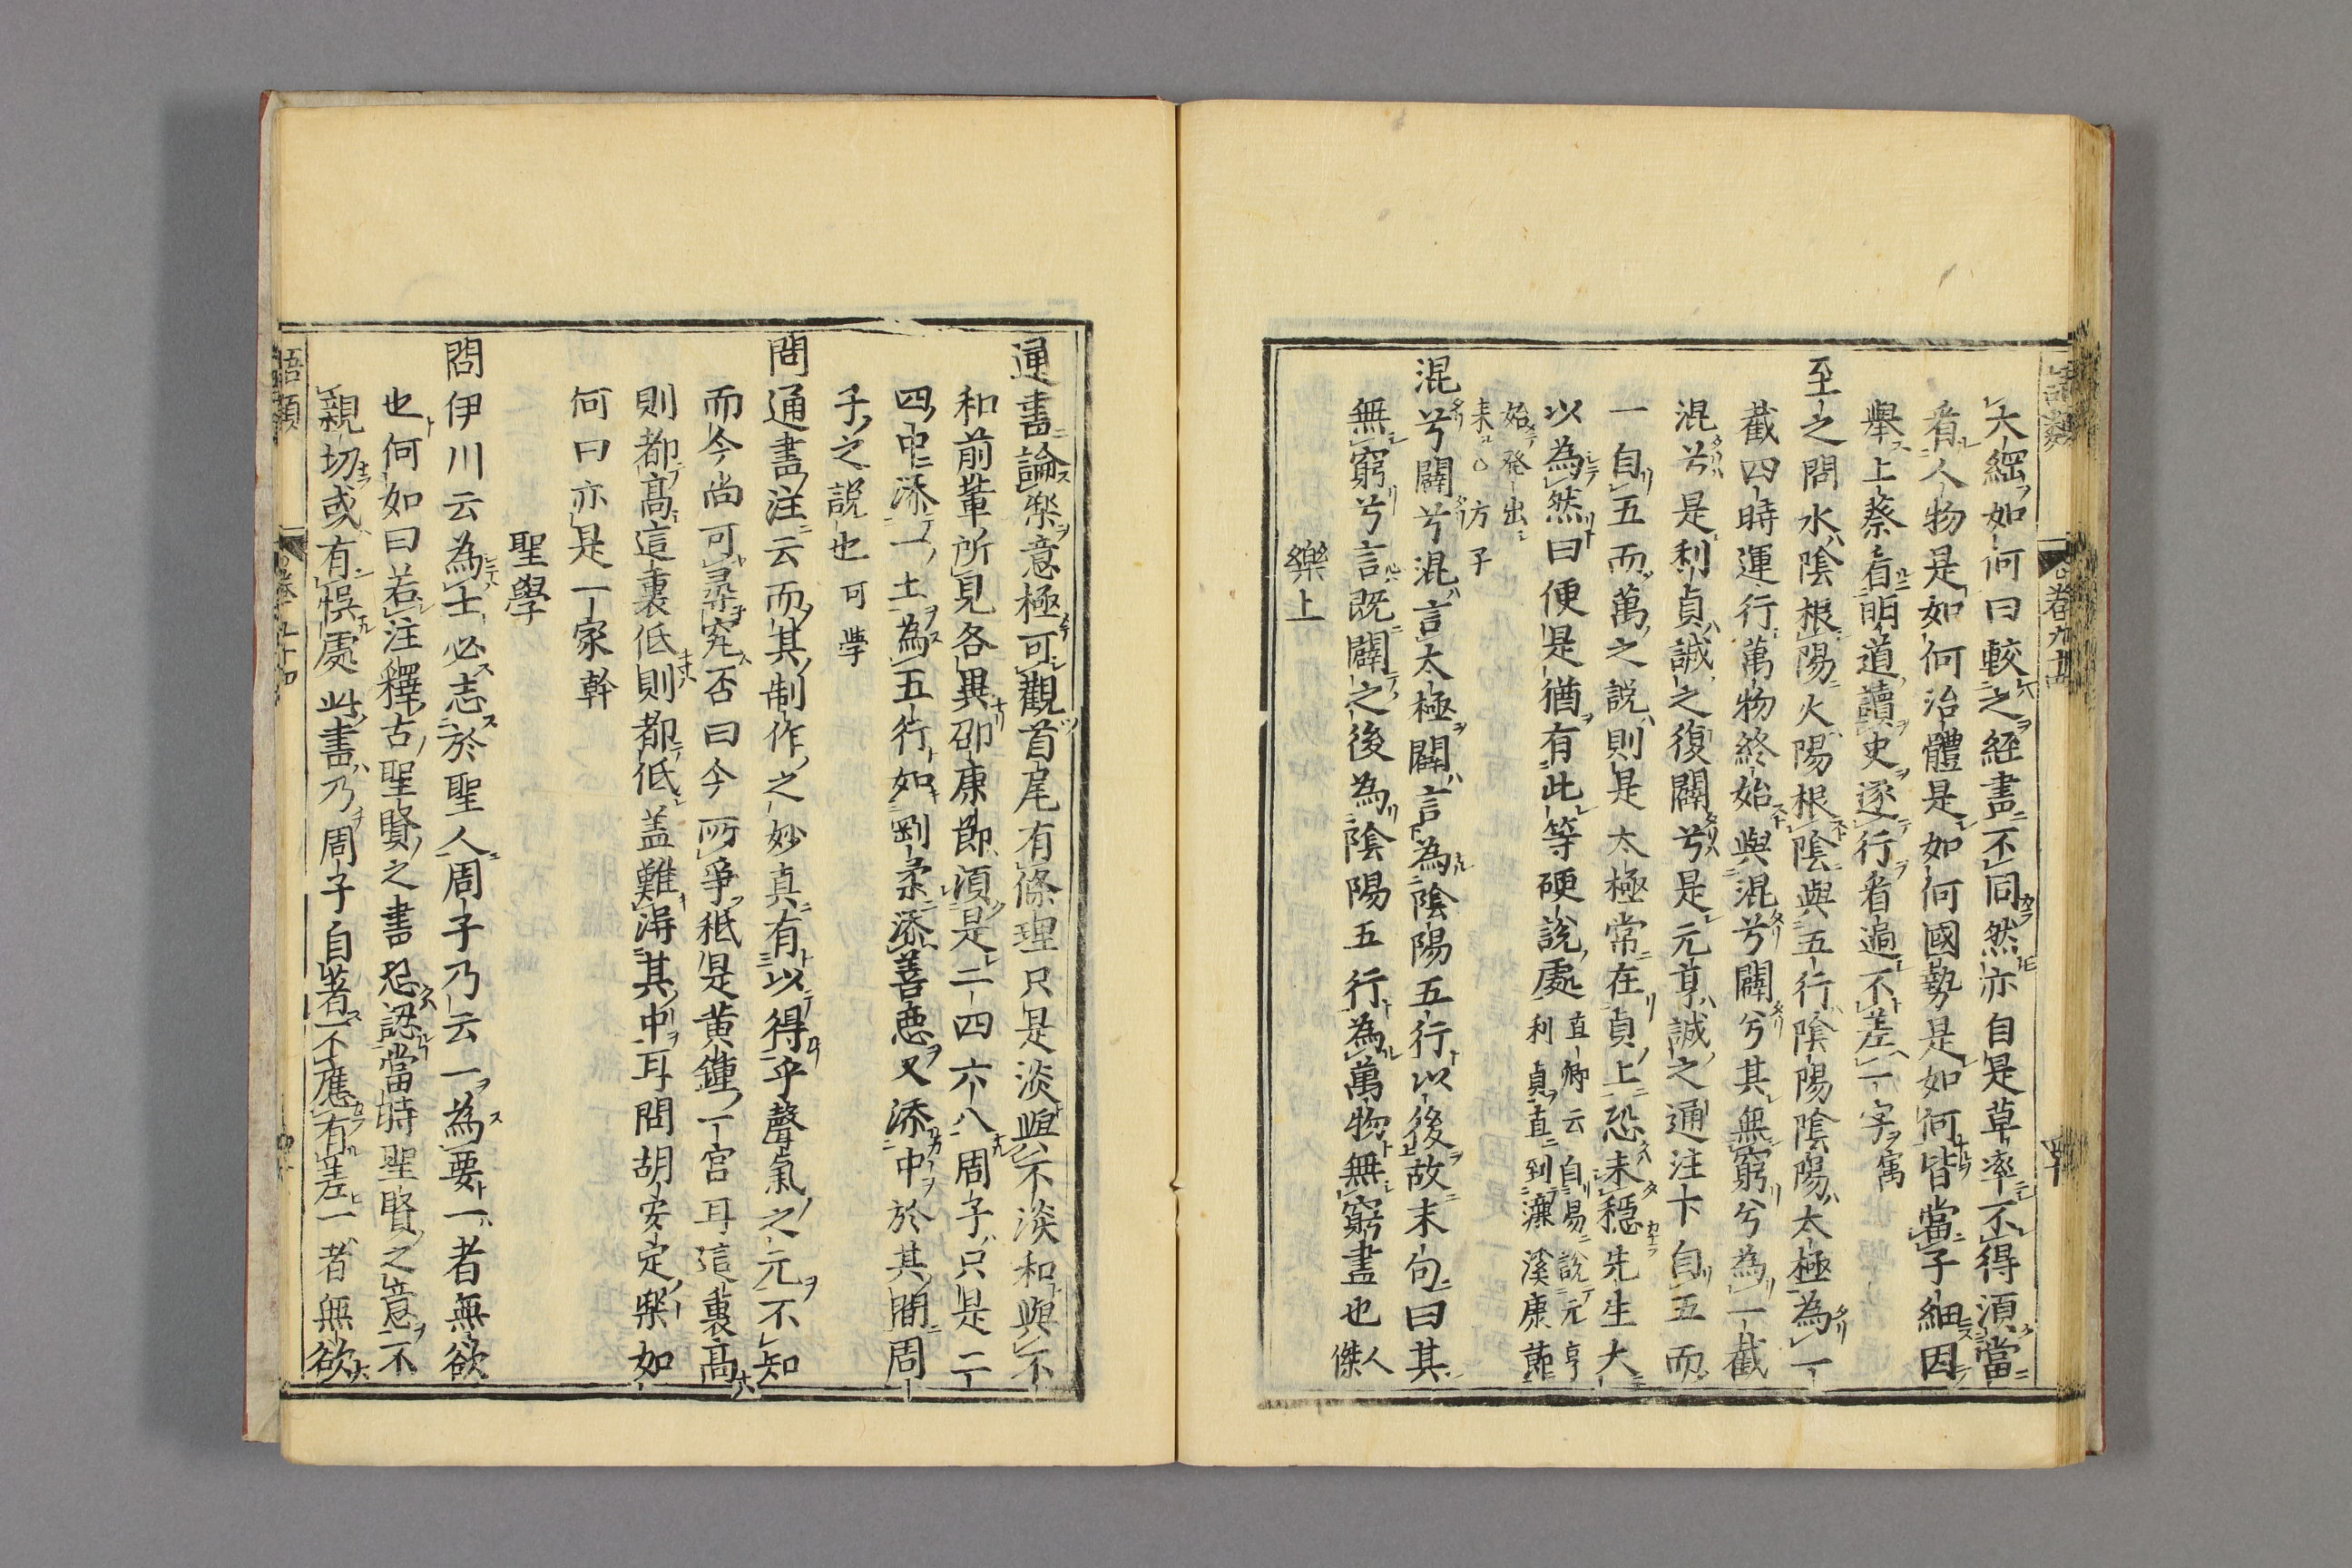 大綱如何曰較之經書不同然亦自是草率不得須當
看人物是如何治體是如何國勢是如何皆當子細因
舉上蔡看明道讀史逐行看過不差一字㝢
至之問水陰根陽火陽根陰與五行陰陽陰陽太極為一
截四時運行萬物終始與混兮闢兮其無窮兮為一截
混兮是利貞誠之復闢兮是元亨誠之通注下自五而
一自五而萬之說則是太極常在貞上恐未穩先生大
以為然曰便是猶有此等硬說處直卿云自易說元亨
利貞直到濂溪康節
始發出
來〇方子
混兮闢兮混言太極闢言為陰陽五行以後故末句曰其
無窮兮言既闢之後為陰陽五行為萬物無窮盡也人傑
樂上
通書論樂意極可觀首尾有條理只是淡與不淡和與不
和前輩所見各異邵康節須是二四六八周子只是二
四中添一土為五行如剛柔添善惡又添中於其間周
子之說也可學
問通書注云而其制作之妙真有以得乎聲氣之元不知
而今尚可尋究否曰今所爭秪是黃鍾一宮耳這裏高
則都高這裏低則都低蓋難得其中耳問胡安定樂如
何曰亦是一家榦
聖學
問伊川云為士必志於聖人周子乃云一為要一者無欲
也何如曰若注釋古聖賢之書恐認當時聖賢之意不
親切或有悞處此書乃周子自著不應有差一者無欲
語類